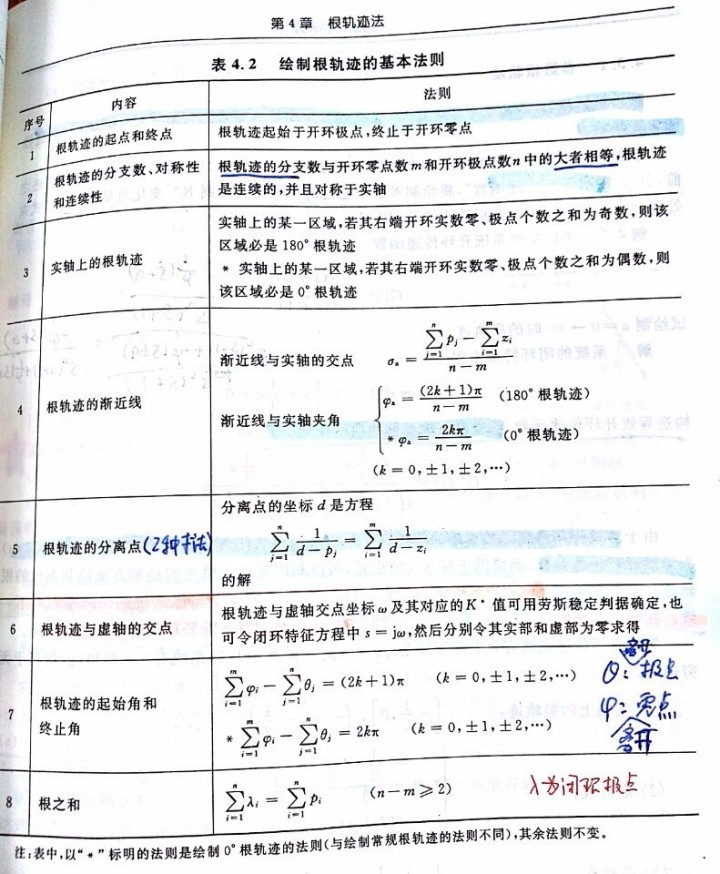 第4章 根轨迹法
表 4.2 绘制根轨迹的基本法则
序号 内容 法则
1 根轨迹的起点和终点 根轨迹起始于开环极点,终止于开环零点
2 根轨迹的分支数、对称性和连续性 根轨迹的分支数与开环零点数m和开环极点数n中的大者相等,根轨迹
是连续的,并且对称于实轴
3 实轴上的根轨迹 实轴上的某一区域,若其右端开环实数零、极点个数之和为奇数,则该
区域必是 180° 根轨迹
* 实轴上的某一区域,若其右端开环实数零、极点个数之和为偶数,则
该区域必是 0° 根轨迹
4 根轨迹的渐近线
渐近线与实轴的交点 σₐ = (∑_{j=1}^{n} pⱼ − ∑_{i=1}^{m} zᵢ)/(n−m)
渐近线与实轴夹角 { φₐ = (2k+1)π/(n−m) (180° 根轨迹)
* φₐ = 2kπ/(n−m) (0° 根轨迹)
(k = 0, ±1, ±2, ⋯)
5 根轨迹的分离点(2种方法)
分离点的坐标 d 是方程
∑_{j=1}^{n} 1/(d−pⱼ) = ∑_{i=1}^{m} 1/(d−zᵢ)
的解
6 根轨迹与虚轴的交点 根轨迹与虚轴交点坐标ω及其对应的K* 值可用劳斯稳定判据确定,也
可令闭环特征方程中 s = jω,然后分别令其实部和虚部为零求得
7 根轨迹的起始角和终止角
∑_{i=1}^{m} φᵢ − ∑_{j=1}^{n} θⱼ = (2k+1)π (k = 0, ±1, ±2, ⋯)
* ∑_{i=1}^{m} φᵢ − ∑_{j=1}^{n} θⱼ = 2kπ (k = 0, ±1, ±2, ⋯)
θ: 极点
φ: 零点
8 根之和 ∑_{i=1}^{n} λᵢ = ∑_{i=1}^{n} pᵢ (n−m ⩾ 2)
λ为闭环极点
注:表中,以“*”标明的法则是绘制 0° 根轨迹的法则(与绘制常规根轨迹的法则不同),其余法则不变。